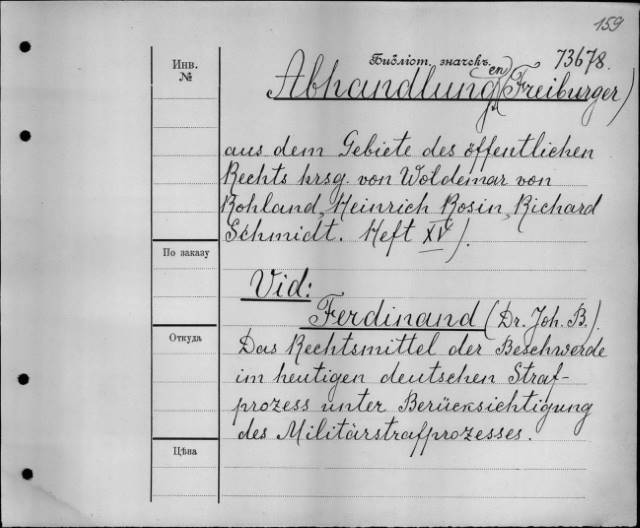 159
Инв.
№
Библіот. значекъ.
73678.
Abhandlung(en) (Freiburger)
aus dem Gebiete des öffentlichen
Rechts hrsg. von Woldemar von
Rohland, Heinrich Rosin, Richard
Schmidt. Heft XV).
По заказу
Vid:
Ferdinand (Dr. Joh. B.).
Откуда
Das Rechtsmittel der Beschwerde
im heutigen deutschen Straf-
prozess unter Berücksichtigung
des Militärstrafprozesses.
Цѣна